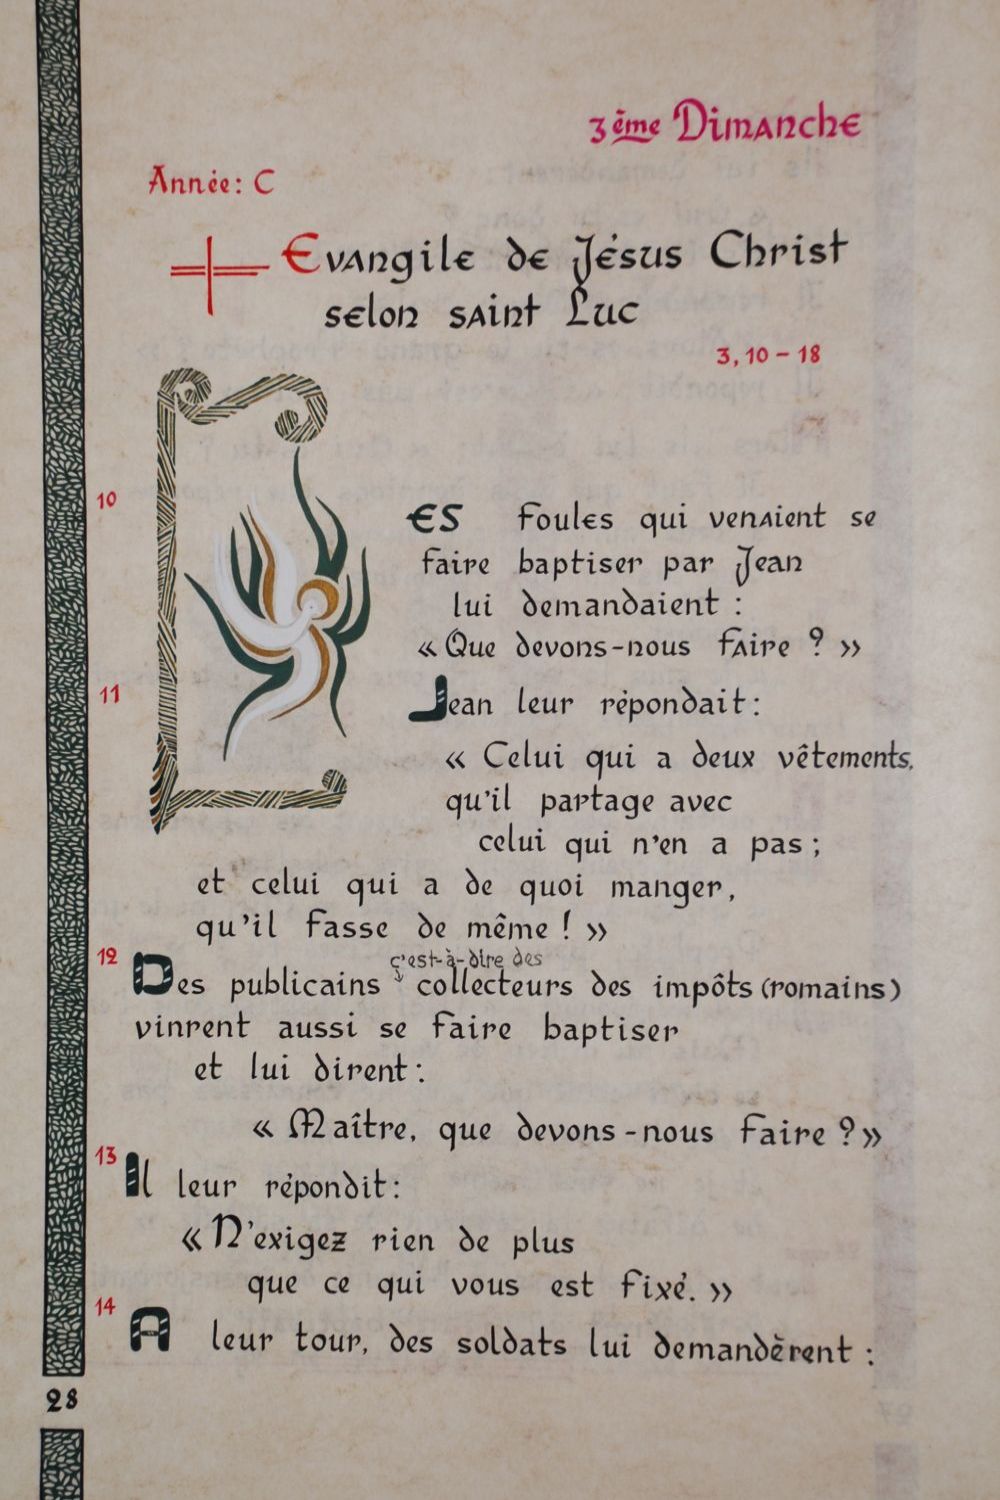 3ème Dimanche
Année: C
Evangile de Jésus Christ
selon saint Luc
3, 10 - 18
10
Les foules qui venaient se
faire baptiser par Jean
lui demandaient :
« Que devons-nous faire ? »
11
Jean leur répondait :
« Celui qui a deux vêtements,
qu'il partage avec
celui qui n'en a pas ;
et celui qui a de quoi manger,
qu'il fasse de même ! »
c'est-à-dire des
12 Des publicains collecteurs des impôts (romains)
vinrent aussi se faire baptiser
et lui dirent :
« Maître, que devons-nous faire ? »
13 Il leur répondit :
« N'exigez rien de plus
que ce qui vous est fixé. »
14 A leur tour, des soldats lui demandèrent :
28